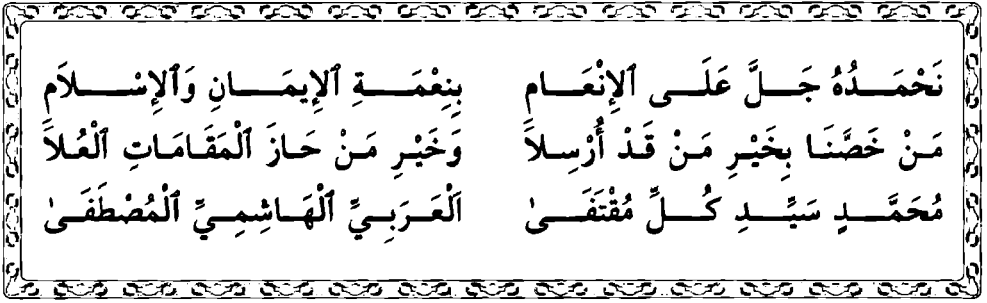 نَحْمَدُهُ جَلَّ عَلَى ٱلإِنْعَامِ بِنِعْمَةِ ٱلإِيمَانِ وَٱلإِسْلاَمِ
مَنْ خَصَّنَا بِخَيْرِ مَنْ قَدْ أُرْسِلاَ وَخَيْرِ مَنْ حَازَ ٱلْمَقَامَاتِ ٱلْعُلاَ
مُحَمَّدٍ سَيِّدِ كُلِّ مُقْتَفَىٰ ٱلْعَرَبِيِّ ٱلْهَاشِمِيِّ ٱلْمُصْطَفَىٰ